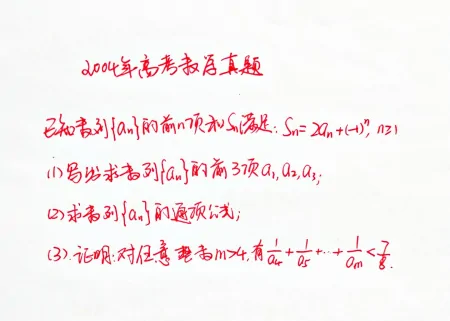 2004年高考数学真题
已知数列{an}的前n项和Sn满足: Sn=2an+(-1)^n, n≥1
(1)写出求数列{an}的前3项a1,a2,a3;
(2)求数列{an}的通项公式;
(3).证明:对任意整数m>4,有1/a4+1/a5+…+1/am<7/8.